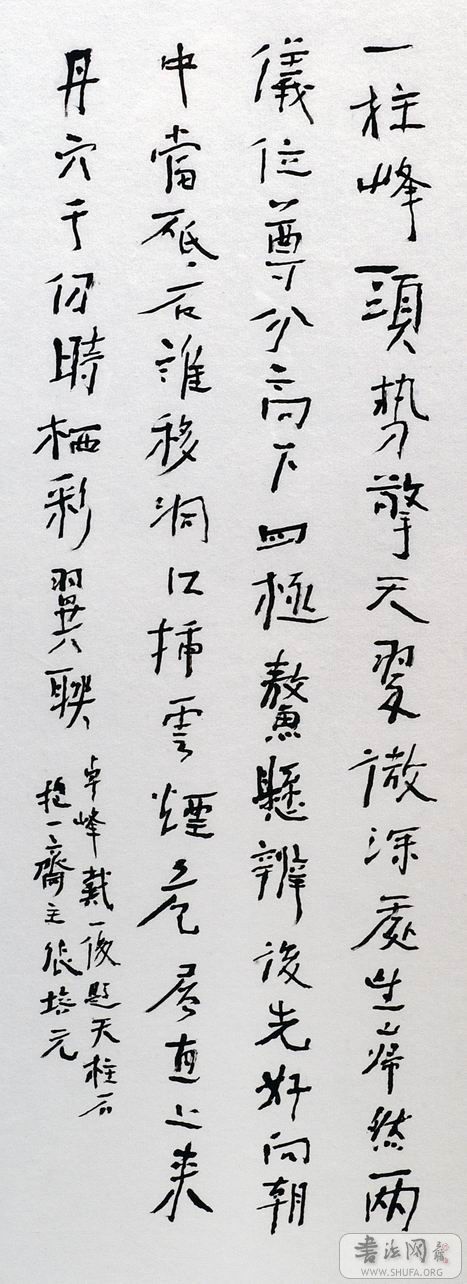 一柱峰頭势擎天翠微深處生巋然兩
儀位尊分高下四極鰲懸辨後先好向朝
中當砥石誰移洞口插雲煙危層直上來
丹穴千仞時栖彩翼聯
卓峰戴一俊題天柱石
抱一齋主張培元
書法网
WWW.SHUFA.ORG